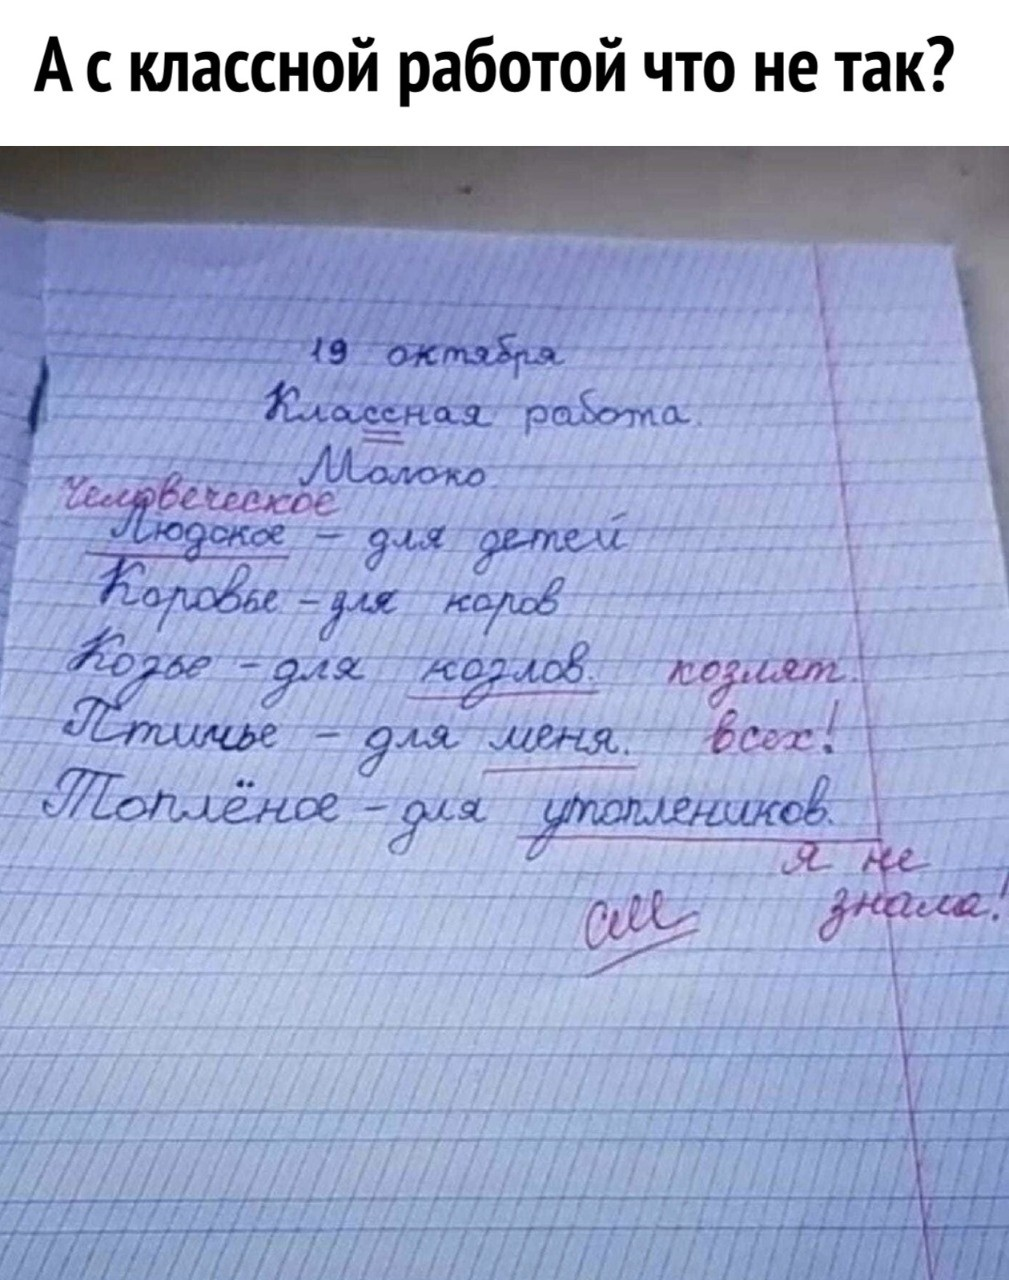 А с классной работой что не так?
19 октября
Классная работа.
Молоко
Человеческое
Людское - для детей
Коровье - для коров
Козье - для козлов. козлят.
Птичье - для меня. всех!
Топлёное - для утоплеников.
я не
знала!
см